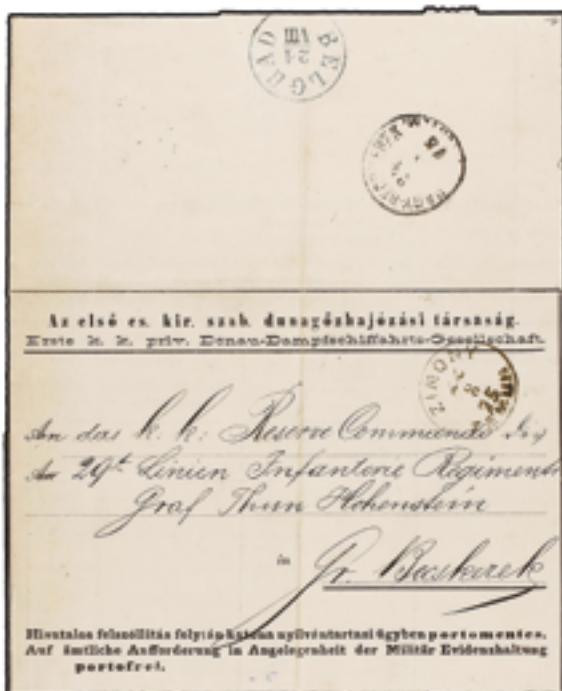 BELGRAD
24
VIII
Az első cs. kir. szab. dunagőzhajózási társaság.
Erste k. k. priv. Donau-Dampfschiffahrts-Gesellschaft.
ZIMONY
An das k. k: Reserve Commando des
29t Linien Infanterie Regiments
Graf Thun Hohenstein
in
Gr. Becskerek
Hivatalos felszóllitás folytán katona nyilvántartasi ügyben portomentes.
Auf ämtliche Aufforderung in Angelegenheit der Militär Evidenzhaltung
portofrei.